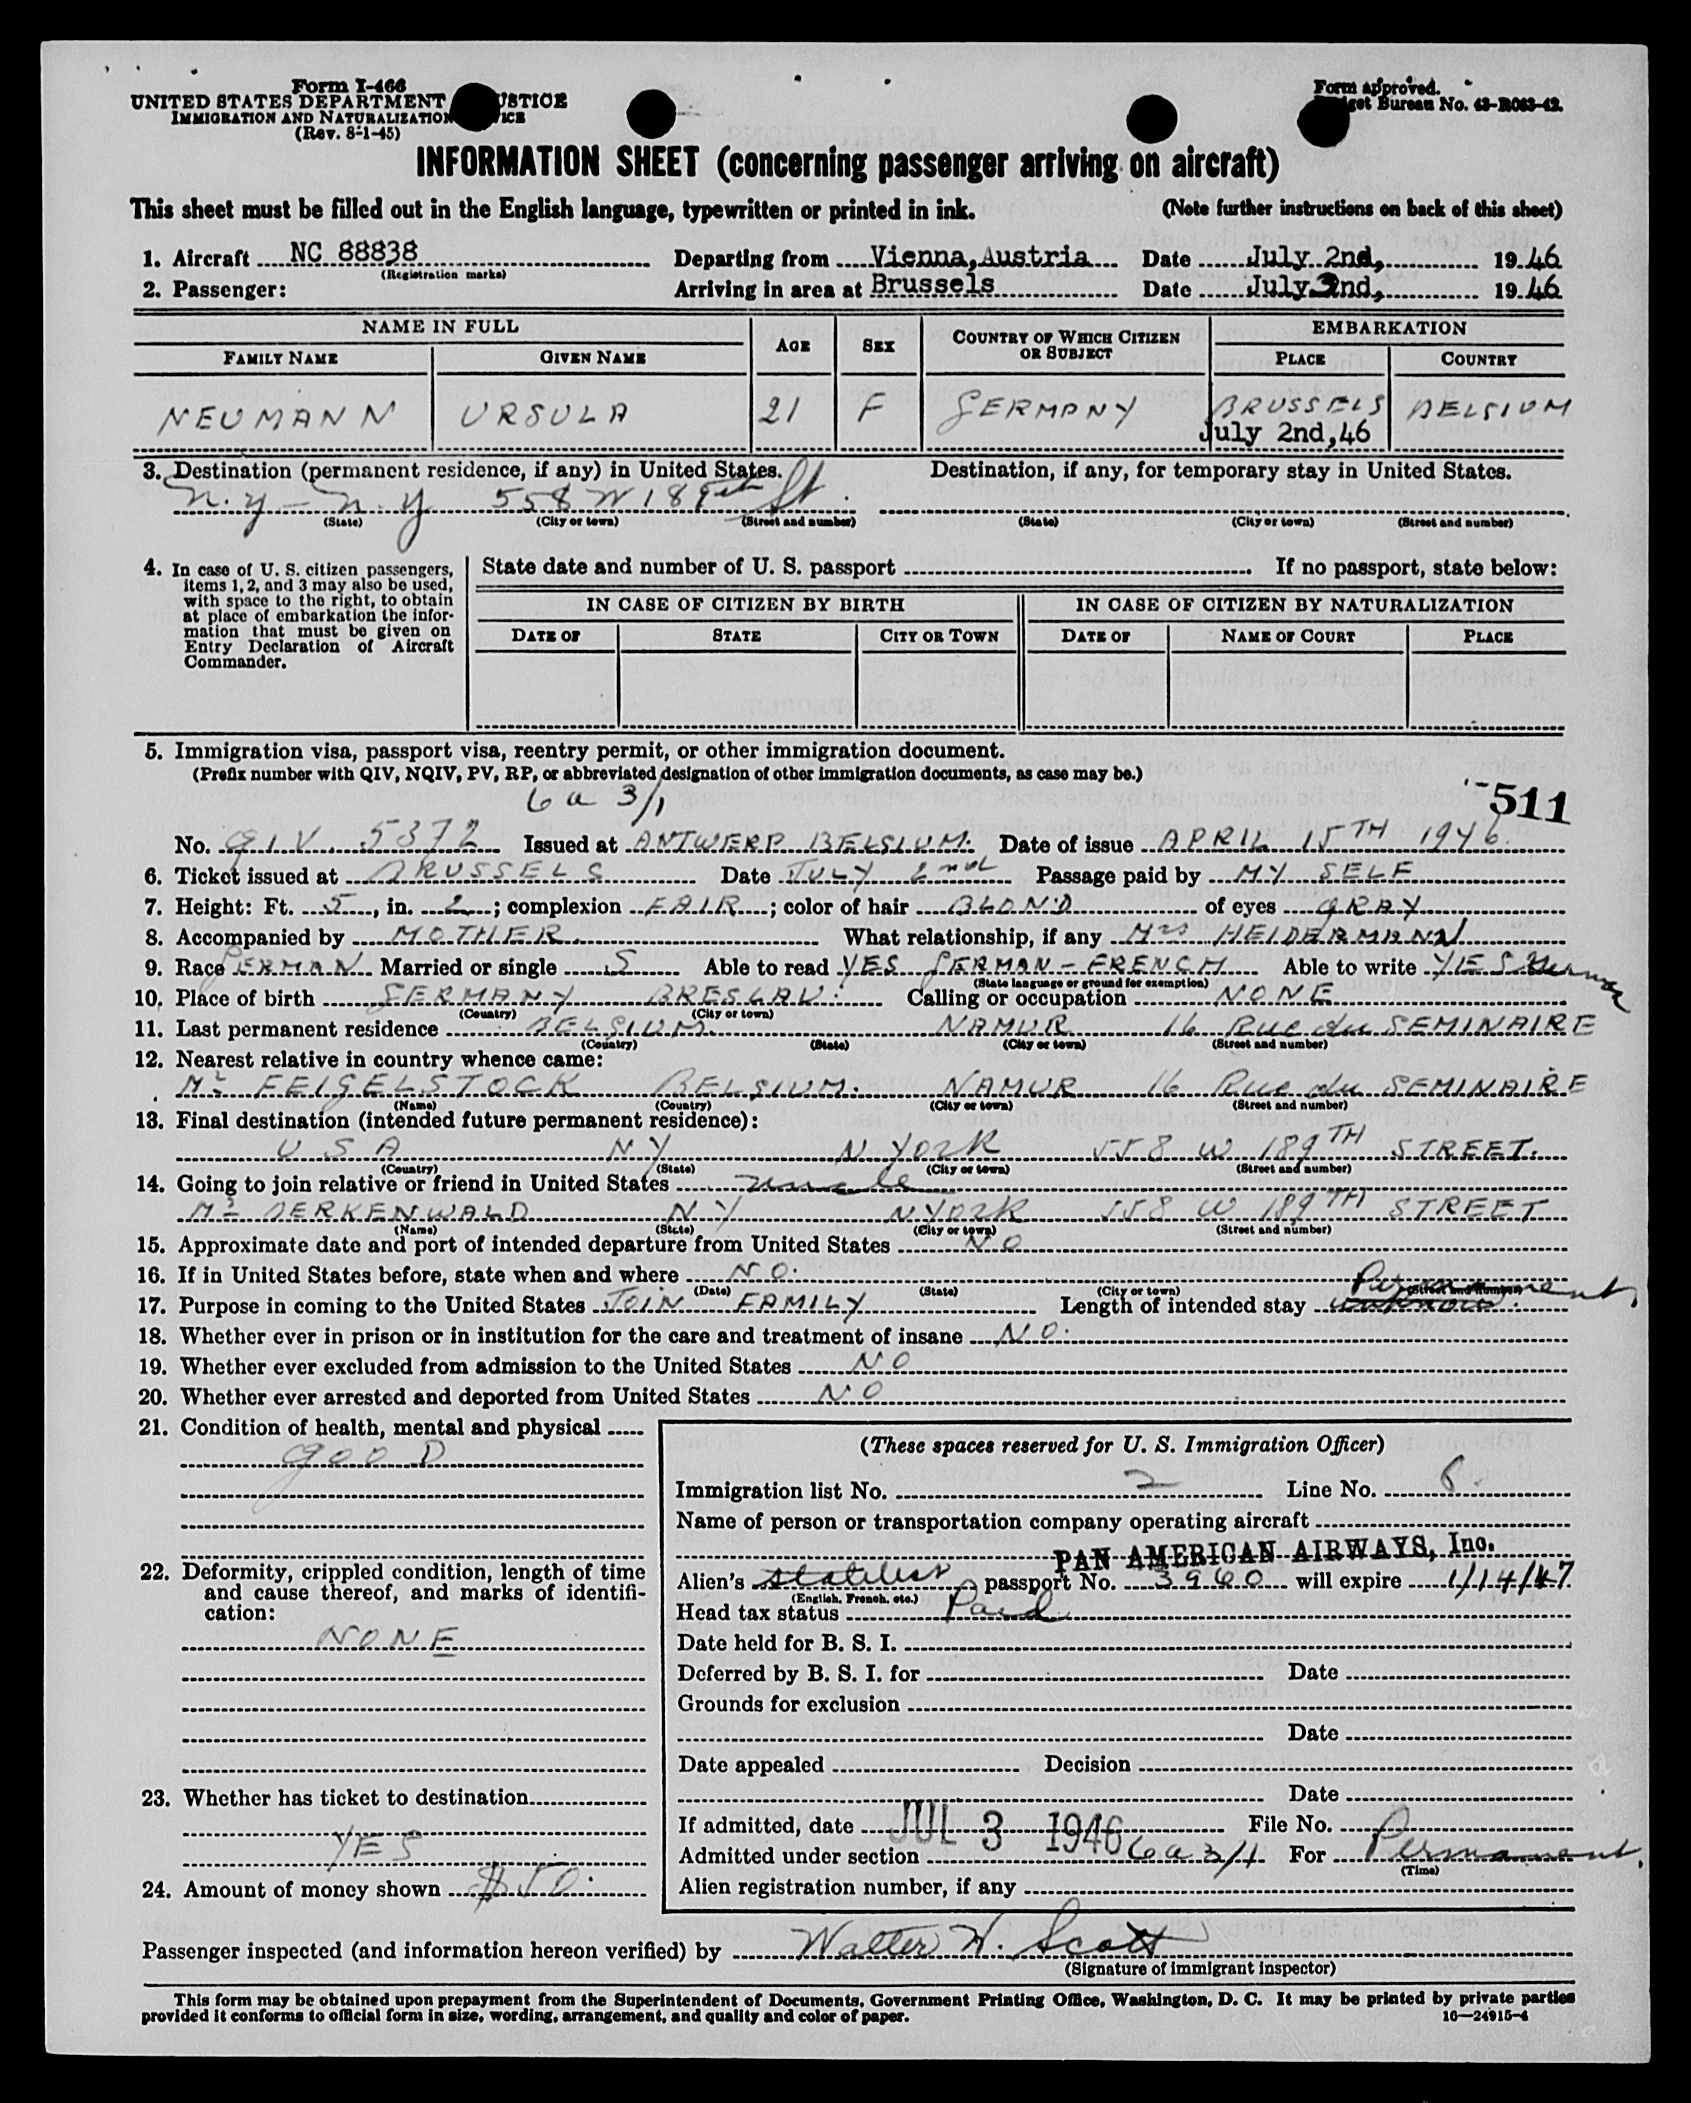 Form I-466
UNITED STATES DEPARTMENT JUSTICE
IMMIGRATION AND NATURALIZATION
(Rev. 8-1-45)
Form approved.
Budget Bureau No. 43-R063-42.
INFORMATION SHEET (concerning passenger arriving on aircraft)
This sheet must be filled out in the English language, typewritten or printed in ink. (Note further instructions on back of this sheet)
1. Aircraft NC 88838 Departing from Vienna, Austria Date July 2nd, 1946
(Registration marks)
2. Passenger: Arriving in area at Brussels Date July 2nd, 1946
NAME IN FULL AGE SEX COUNTRY OF WHICH CITIZEN OR SUBJECT EMBARKATION
FAMILY NAME GIVEN NAME PLACE COUNTRY
NEUMANN URSULA 21 F GERMANY BRUSSELS BELGIUM
July 2nd,46
3. Destination (permanent residence, if any) in United States. Destination, if any, for temporary stay in United States.
N.Y - N.Y 558 W 189th St.
(State) (City or town) (Street and number) (State) (City or town) (Street and number)
4. In case of U. S. citizen passengers, items 1, 2, and 3 may also be used, with space to the right, to obtain at place of embarkation the information that must be given on Entry Declaration of Aircraft Commander.
State date and number of U. S. passport If no passport, state below:
IN CASE OF CITIZEN BY BIRTH IN CASE OF CITIZEN BY NATURALIZATION
DATE OF STATE CITY OR TOWN DATE OF NAME OF COURT PLACE
5. Immigration visa, passport visa, reentry permit, or other immigration document.
(Prefix number with QIV, NQIV, PV, RP, or abbreviated designation of other immigration documents, as case may be.)
6 a 3/1 511
No. QIV 5372 Issued at ANTWERP BELGIUM. Date of issue APRIL 15TH 1946.
6. Ticket issued at BRUSSELS Date JULY 2nd Passage paid by MY SELF
7. Height: Ft. 5, in. 2; complexion FAIR; color of hair BLOND of eyes GRAY
8. Accompanied by MOTHER What relationship, if any Mrs HEIDERMANN
9. Race GERMAN Married or single S Able to read YES GERMAN - FRENCH Able to write YES German
(State language or ground for exemption)
10. Place of birth GERMANY BRESLAU. Calling or occupation NONE
(Country) (City or town)
11. Last permanent residence BELGIUM NAMUR 16 Rue du SEMINAIRE
(Country) (State) (City or town) (Street and number)
12. Nearest relative in country whence came:
Mr FEIGELSTOCK BELGIUM. NAMUR 16 Rue du SEMINAIRE
(Name) (Country) (City or town) (Street and number)
13. Final destination (intended future permanent residence):
U S A NY N YORK 558 W 189TH STREET.
(Country) (State) (City or town) (Street and number)
14. Going to join relative or friend in United States uncle
Mr BERKENWALD NY N YORK 558 W 189TH STREET
(Name) (State) (City or town) (Street and number)
15. Approximate date and port of intended departure from United States NO
16. If in United States before, state when and where NO.
(Date) (State) (City or town) (Street and number)
17. Purpose in coming to the United States JOIN FAMILY Length of intended stay Permanent
18. Whether ever in prison or in institution for the care and treatment of insane NO.
19. Whether ever excluded from admission to the United States NO
20. Whether ever arrested and deported from United States NO
21. Condition of health, mental and physical
GOOD
22. Deformity, crippled condition, length of time and cause thereof, and marks of identification:
NONE
23. Whether has ticket to destination
YES
24. Amount of money shown $50.
(These spaces reserved for U. S. Immigration Officer)
Immigration list No. 2 Line No. 8.
Name of person or transportation company operating aircraft
PAN AMERICAN AIRWAYS, Inc.
Alien's stateless passport No. 3960 will expire 1/14/47
(English, French, etc.)
Head tax status Paid
Date held for B. S. I.
Deferred by B. S. I. for Date
Grounds for exclusion
Date
Date appealed Decision
Date
If admitted, date JUL 3 1946 File No.
Admitted under section 6a3/1 For Permanent.
(Time)
Alien registration number, if any
Passenger inspected (and information hereon verified) by Walter W. Scott
(Signature of immigrant inspector)
This form may be obtained upon prepayment from the Superintendent of Documents, Government Printing Office, Washington, D. C. It may be printed by private parties
provided it conforms to official form in size, wording, arrangement, and quality and color of paper. 16—24915-4